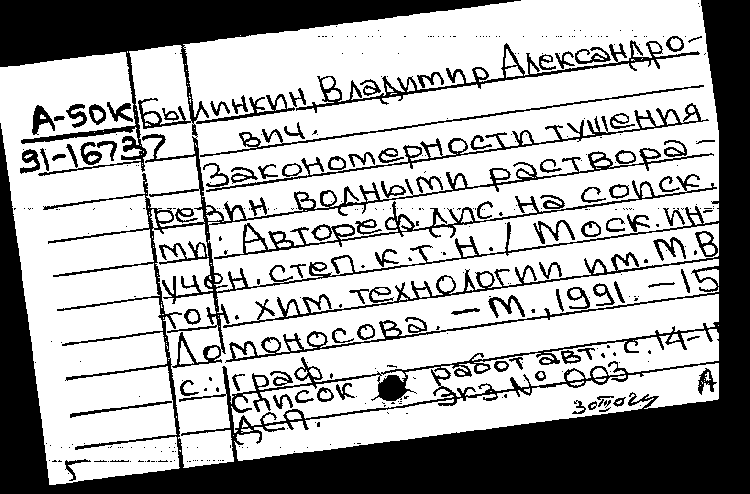 А-50К Былинкин, Владимир Александро-
91-16737 вич.
Закономерности тушения
резин водными раствора-
ми: Автореф. дис. на соиск.
учен. степ. к.т.н. / Моск. ин-
тон. хим. технологии им. М.В
Ломоносова. – М., 1991. – 15
с.: граф.
список работ авт.: с. 14-15
ДСП. Экз. № 003.
А
5